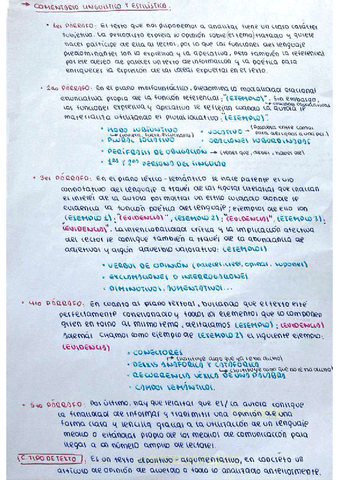 → COMENTARIO LINGÜÍSTICO Y ESTILÍSTICO.
• 1er PÁRRAFO: El texto que nos disponemos a analizar tiene un claro carácter
subjetivo. La periodista expresa su opinión sobre el tema tratado y quiere
hacer partícipe de ella al lector, por lo que las funciones del lenguaje
predominantes son la expresiva y la apelativa, pero también la referencial
por el deseo de parte del texto de información y la poética para
enriquecer la expresión de las ideas expuestas en el texto.
• 2do PÁRRAFO: En el plano morfosintáctico, predomina la modalidad oracional
enunciativa propia de la función referencial; "(EJEMPLO)". Sin embargo,
las funciones expresiva y apelativa se reflejan cuando la autora se
materializa utilizando el plural "(EJEMPLO)".
• MODO SUBJUNTIVO
• VOCATIVO
• PLURAL
• ORACIONES
• PERÍFRASIS DE OBLIGACIÓN
• 1ª Y 2ª PERSONA DEL SINGULAR
• 3er PÁRRAFO: En el plano léxico-semántico se hace patente el uso
connotativo del lenguaje a través de las figuras literarias que indican
el interés de la autora por mostrar un estilo cuidado donde se
evidencia la función poética del lenguaje; ejemplos de ello son
(EJEMPLO 1): "(EVIDENCIA)", (EJEMPLO 2): "(EVIDENCIA)", (EJEMPLO 3):
"(EVIDENCIA)". La intencionalidad crítica y la implicación afectiva
del lector se consigue también a través de la abundancia de
adjetivos y algún adjetivo valorativo: (EJEMPLOS)
• VERBOS DE OPINIÓN
• EXCLAMACIONES O INTERROGACIONES
• DIMINUTIVOS, AUMENTATIVOS...
• 4to PÁRRAFO: En cuanto al plano textual, buscando que el texto esté
perfectamente cohesionado y todos los elementos que lo componen
giren en torno al mismo tema, destacamos (EJEMPLO): (EVIDENCIA)
Además contamos como ejemplo de (EJEMPLO 2) el siguiente ejemplo:
(EVIDENCIA)
• CONECTORES
• DEIXIS ANAFÓRICA Y CATAFÓRICA
• RECURRENCIA LÉXICA DE UNAS PALABRAS
• CAMPO SEMÁNTICO.
• 5to PÁRRAFO: Por último, hay que resaltar que el/la autor/a consigue
la finalidad de informar y transmitir una opinión de una
forma clara y sencilla gracias a la utilización de un lenguaje
medio o estándar propio de los medios de comunicación para
llegar a un número amplio de lectores.
C. TIPO DE TEXTO: Es un texto expositivo-argumentativo, en concreto un
artículo de opinión de acuerdo a todo lo analizado anteriormente.